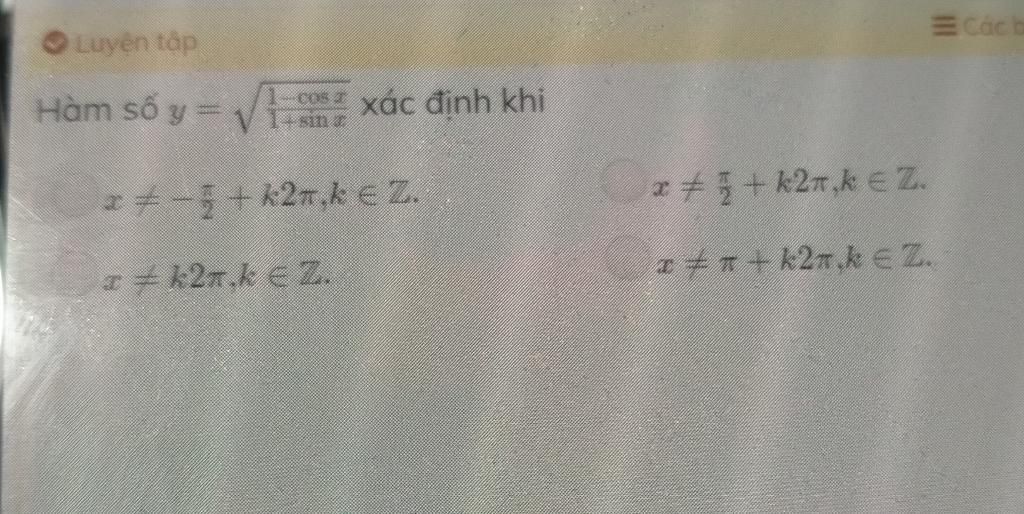 Luyện tập
Các b
Hàm số y = √((1−cos x)/(1+sin x)) xác định khi
x ≠ −π/2 + k2π,k ∈ ℤ.
x ≠ π/2 + k2π,k ∈ ℤ.
x ≠ k2π,k ∈ ℤ.
x ≠ π + k2π,k ∈ ℤ.